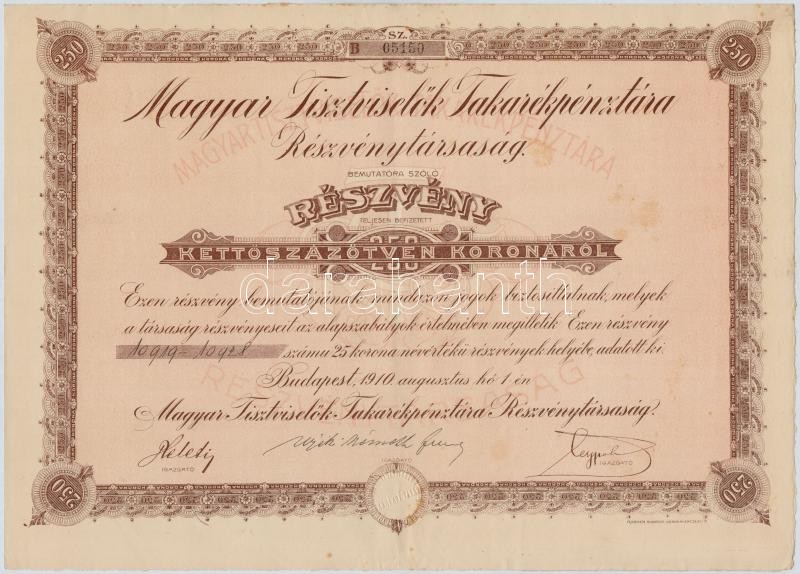 SZ.
250
250
B 05150
Magyar Tisztviselők Takarékpénztára
Részvénytársaság.
BEMUTATÓRA SZÓLÓ
RÉSZVÉNY
TELJESEN BEFIZETETT
250
KETTŐSZÁZÖTVEN KORONÁRÓL
darabanth
Ezen részvény bemutatójának mindazon jogok biztosíttatnak, melyek
a társaság részvényeseit az alapszabályok értelmében megilletik. Ezen részvény
10919–10928 számu 25 korona névértékü részvények helyébe adatott ki.
Budapest, 1910. augusztus hó 1 én
Magyar Tisztviselők Takarékpénztára Részvénytársaság.
IGAZGATÓ
IGAZGATÓ
IGAZGATÓ
250
250